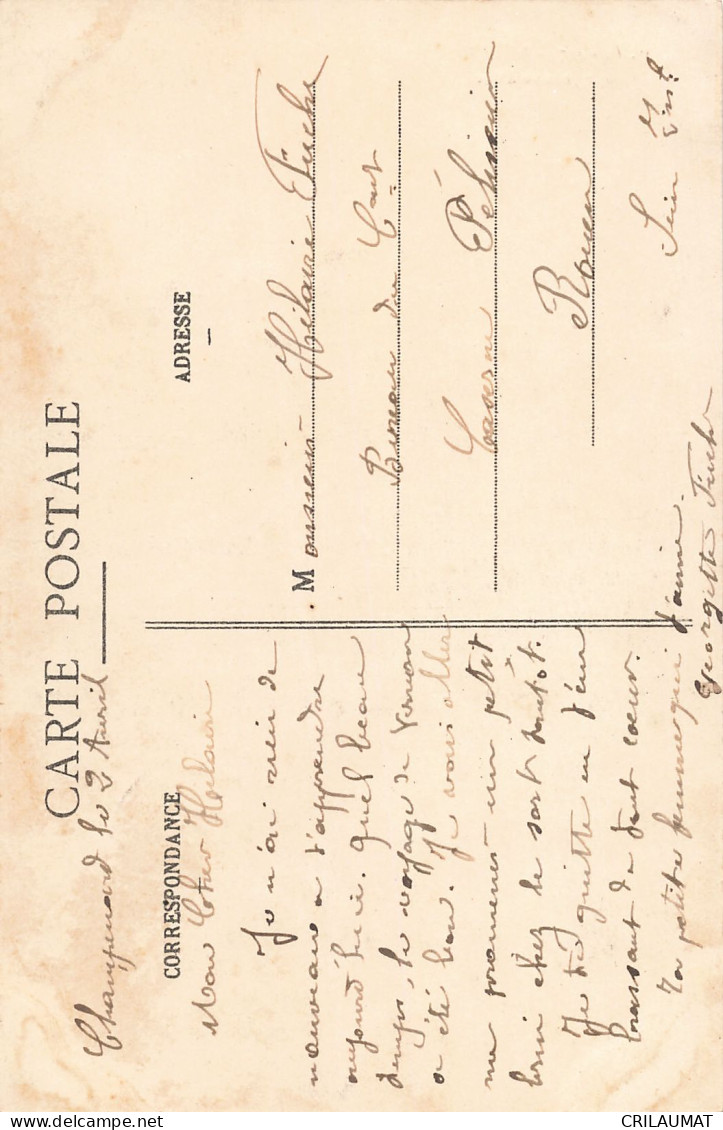 CARTE POSTALE
CORRESPONDANCE
Champenard le 2 Avril
Mon Cher Hilaire
Je n'ai rien de
nouveau a t'apprendre
aujourd'hui. quel beau
temps, le voyage de Vernon
a été bon. Je vais aller
me promener un petit
brin chez le
Je te quitte en t'em
brassant de tout coeur.
Ta petite femme qui t'aime.
Georgette Fuchs
ADRESSE
Monsieur Hilaire Fuchs
Bureau du Ct
Caserne Pélissier
Rouen
Sein Inf.
CRILAUMAT